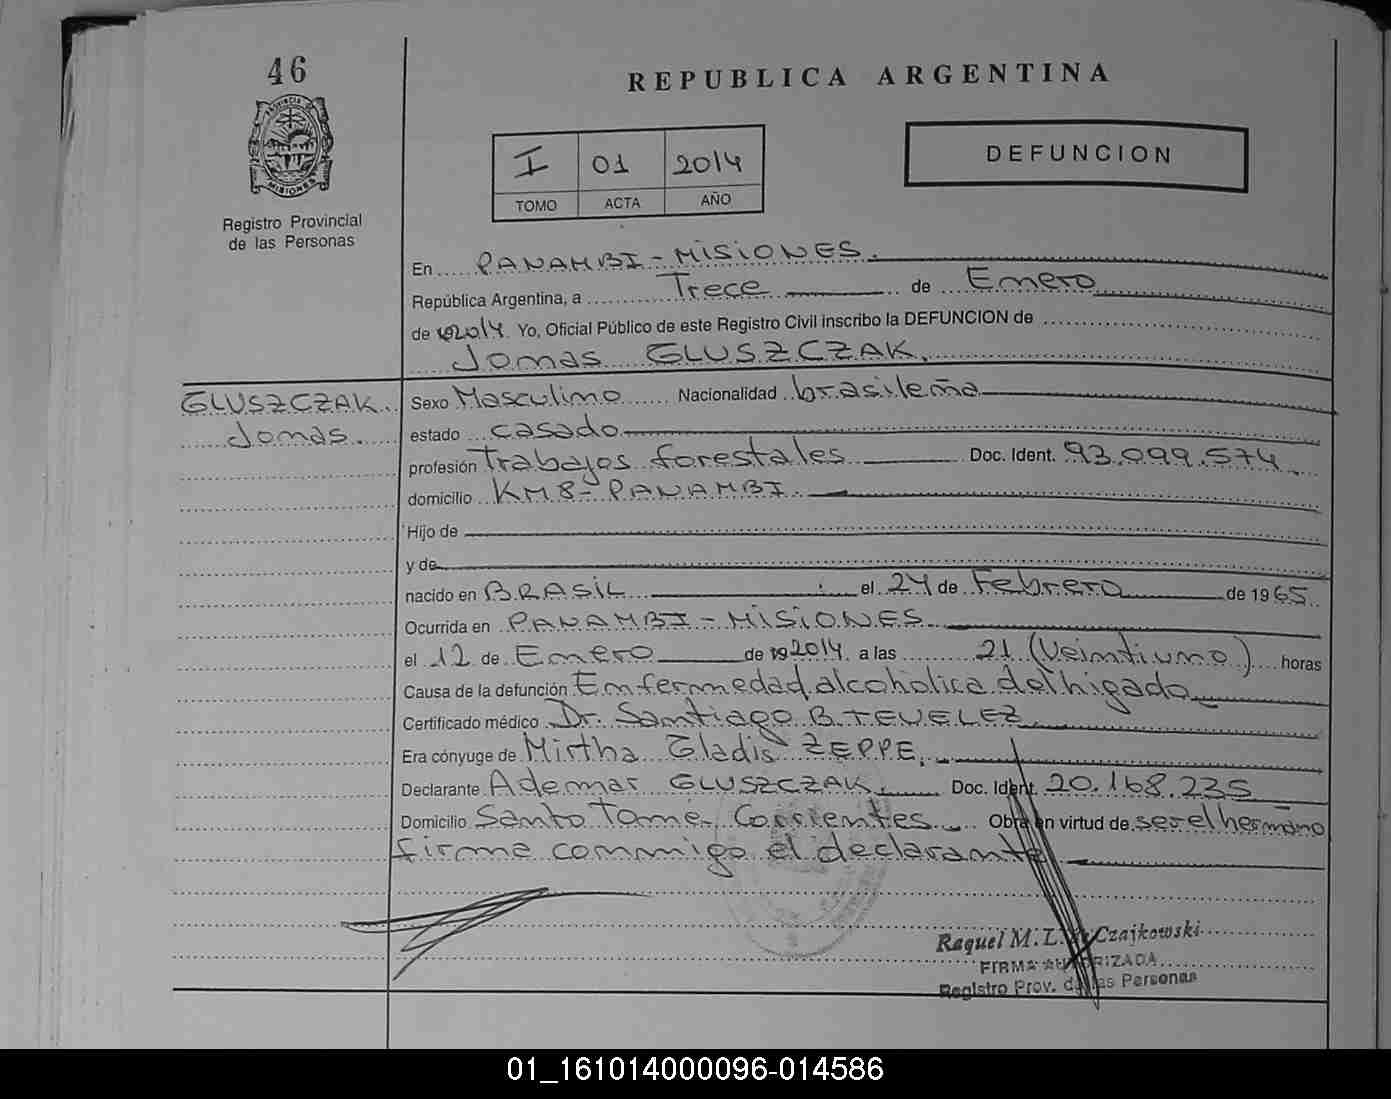 46
REPUBLICA ARGENTINA
PROVINCIA DE
MISIONES
Registro Provincial
de las Personas
I 01 2014
TOMO ACTA AÑO
DEFUNCION
En PANAMBI - MISIONES.
República Argentina, a Trece de Enero
de 2014. Yo, Oficial Público de este Registro Civil inscribo la DEFUNCION de
Jonas GLUSZCZAK.
GLUSZCZAK
Jonas.
Sexo Masculino Nacionalidad brasileña
estado casado
profesión Trabajos forestales Doc. Ident. 93.099.574
domicilio KM8- PANAMBI
Hijo de
y de
nacido en BRASIL el 24 de Febrero de 1965
Ocurrida en PANAMBI - MISIONES
el 12 de Enero de 192014 a las 21 (Veintiuno) horas
Causa de la defunción Enfermedad alcoholica del higado
Certificado médico Dr. Santiago B. TEVELEZ
Era cónyuge de Mirtha Gladis ZEPPE.
Declarante Ademar GLUSZCZAK. Doc. Ident. 20.168.235
Domicilio Santo Tomé- Corrientes Obra en virtud de ser el hermano
firma conmigo el declarante
Raquel M. L. de Czajkowski
FIRMA AUTORIZADA
Registro Prov. de las Personas
01_161014000096-014586